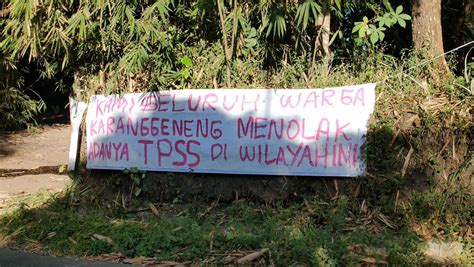 "KAMI SELURUH WARGA
KARANGGENENG MENOLAK
ADANYA TPSS DI WILAYAH INI